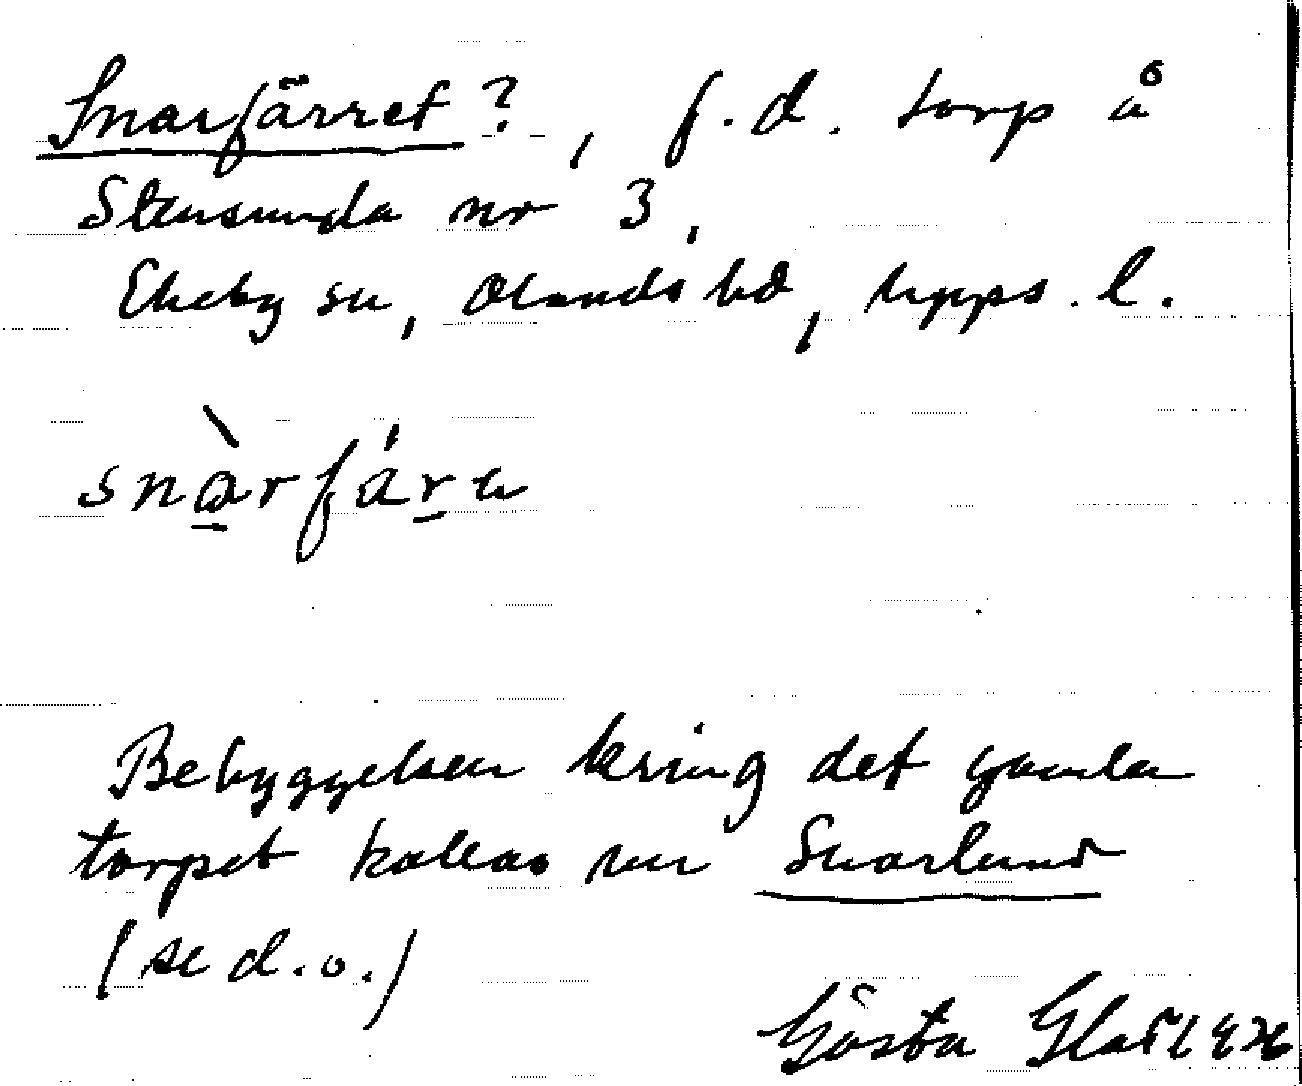 Snarfärret?, f.d. torp å
Stensunda nr 3,
Ekeby sn, Olands hd, Upps. l.
snàrfára
Bebyggelsen kring det gamla
torpet kallas nu Snarlund
(se d.o.)
Gösta